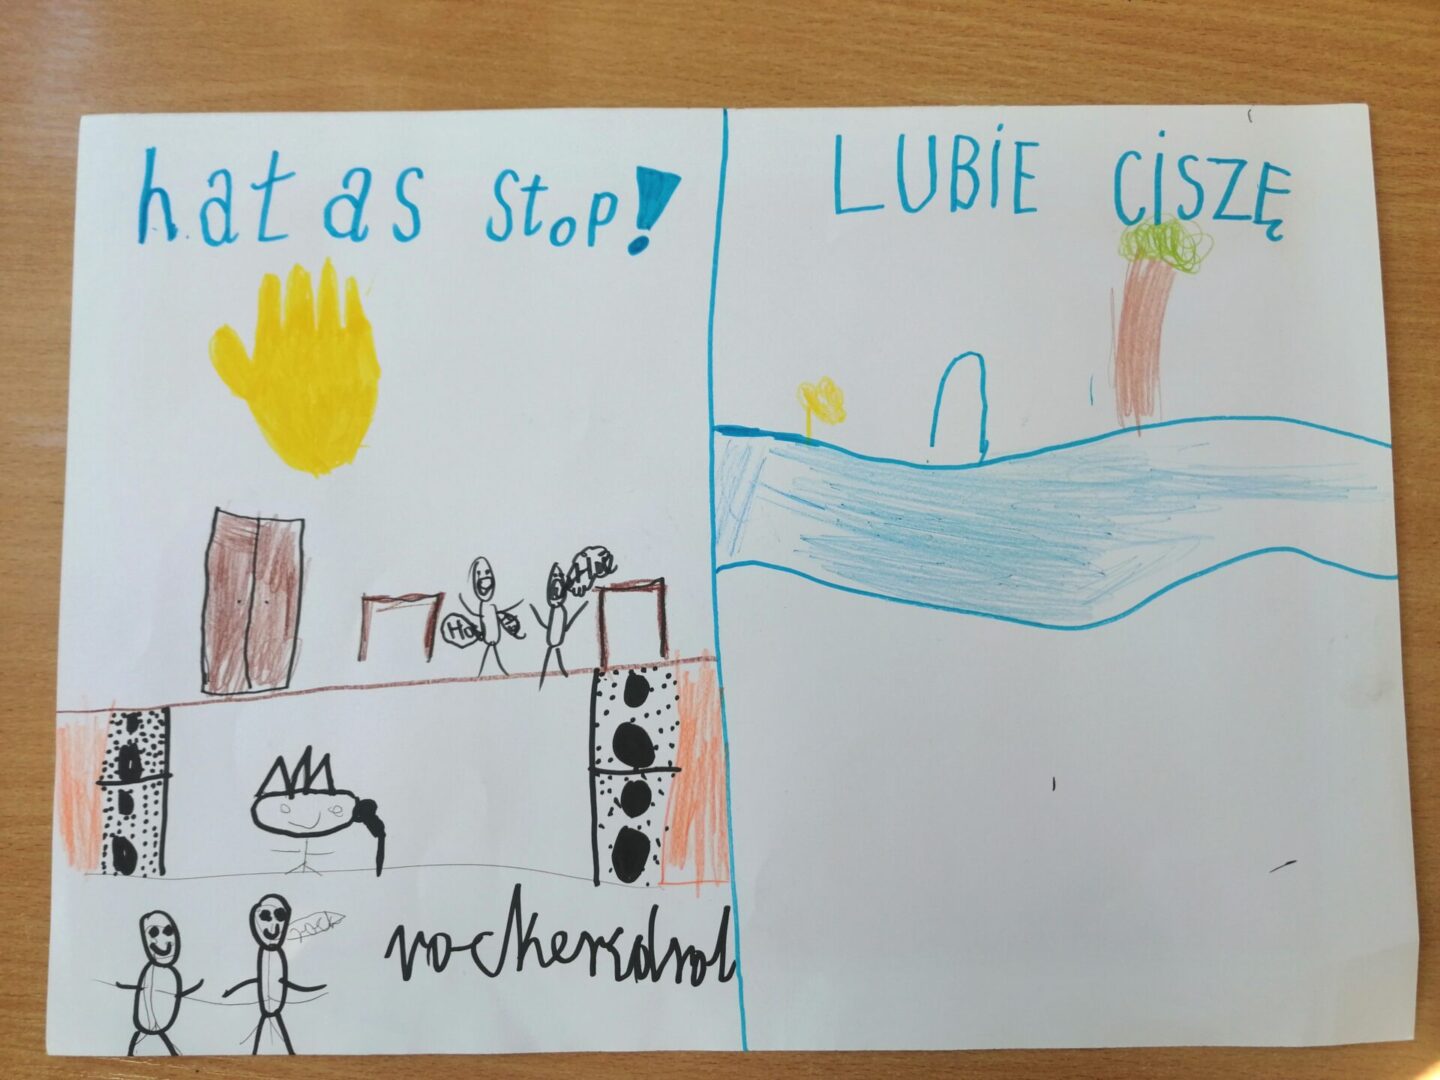 hałas stop!
LUBIE CISZĘ
rockendrol